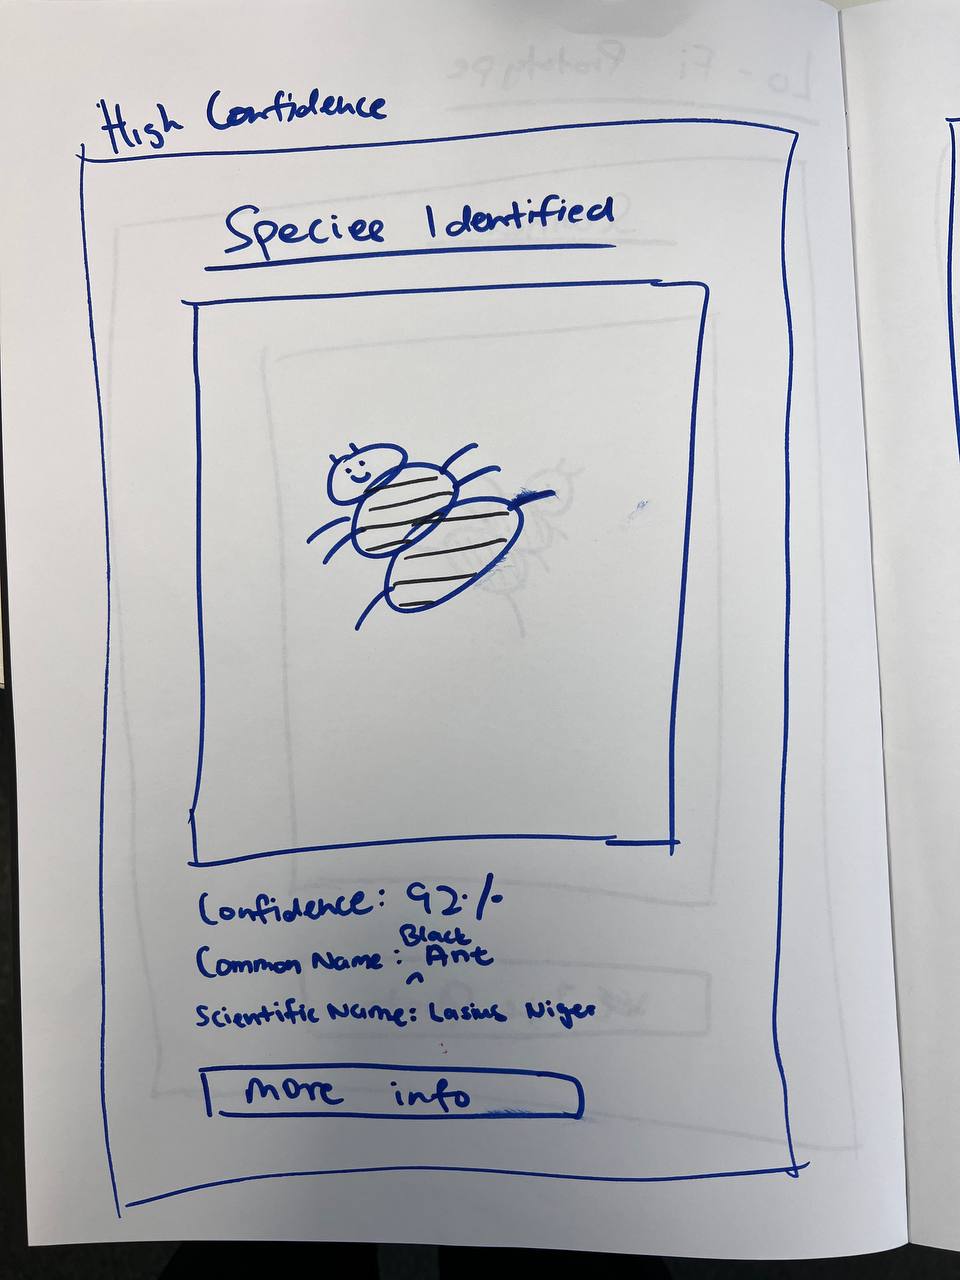 High Confidence
Species Identified
Confidence: 92%
Common Name: Black Ant
Scientific Name: Lasius Niger
More info